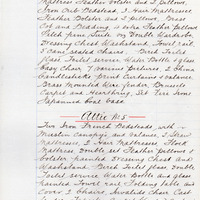 Mattress Feather Bolster and 2 Pillows,
Iron Crib Bedstead, 2 Hair Mattresses
Feather Bolster and 2 pillows, Brass
Cot and Bedding, 2 extra Feather Pillows
Pitch pine Suite viz Double Wardrobe,
Dressing Chest Washstand, Towel rail
3 Cane seated Chairs, Brett Toilet
Ware Toilet service Water Bottle & glass
Easy Chair, 7 various pictures, 2 blue
Candlesticks, print Curtains & valance
Brass Mounted wire fender, Brussels
Carpet and Hearthrug, Set Fire Irons
Japanned Coal base
Attic No 5
Two Iron French Bedsteads, with
Muslin Canopys and valance, 2 Straw
Mattresses, 2 Hair Mattresses Flock
Mattress, Double set Feather pillows &
Bolster, painted Dressing Chest and
Washstand, Birch Toilet glass, double
Toilet service, Water Bottle and glass
painted Towel rail, Folding table and
Cover 3 Chairs, Invalids Chair Cast